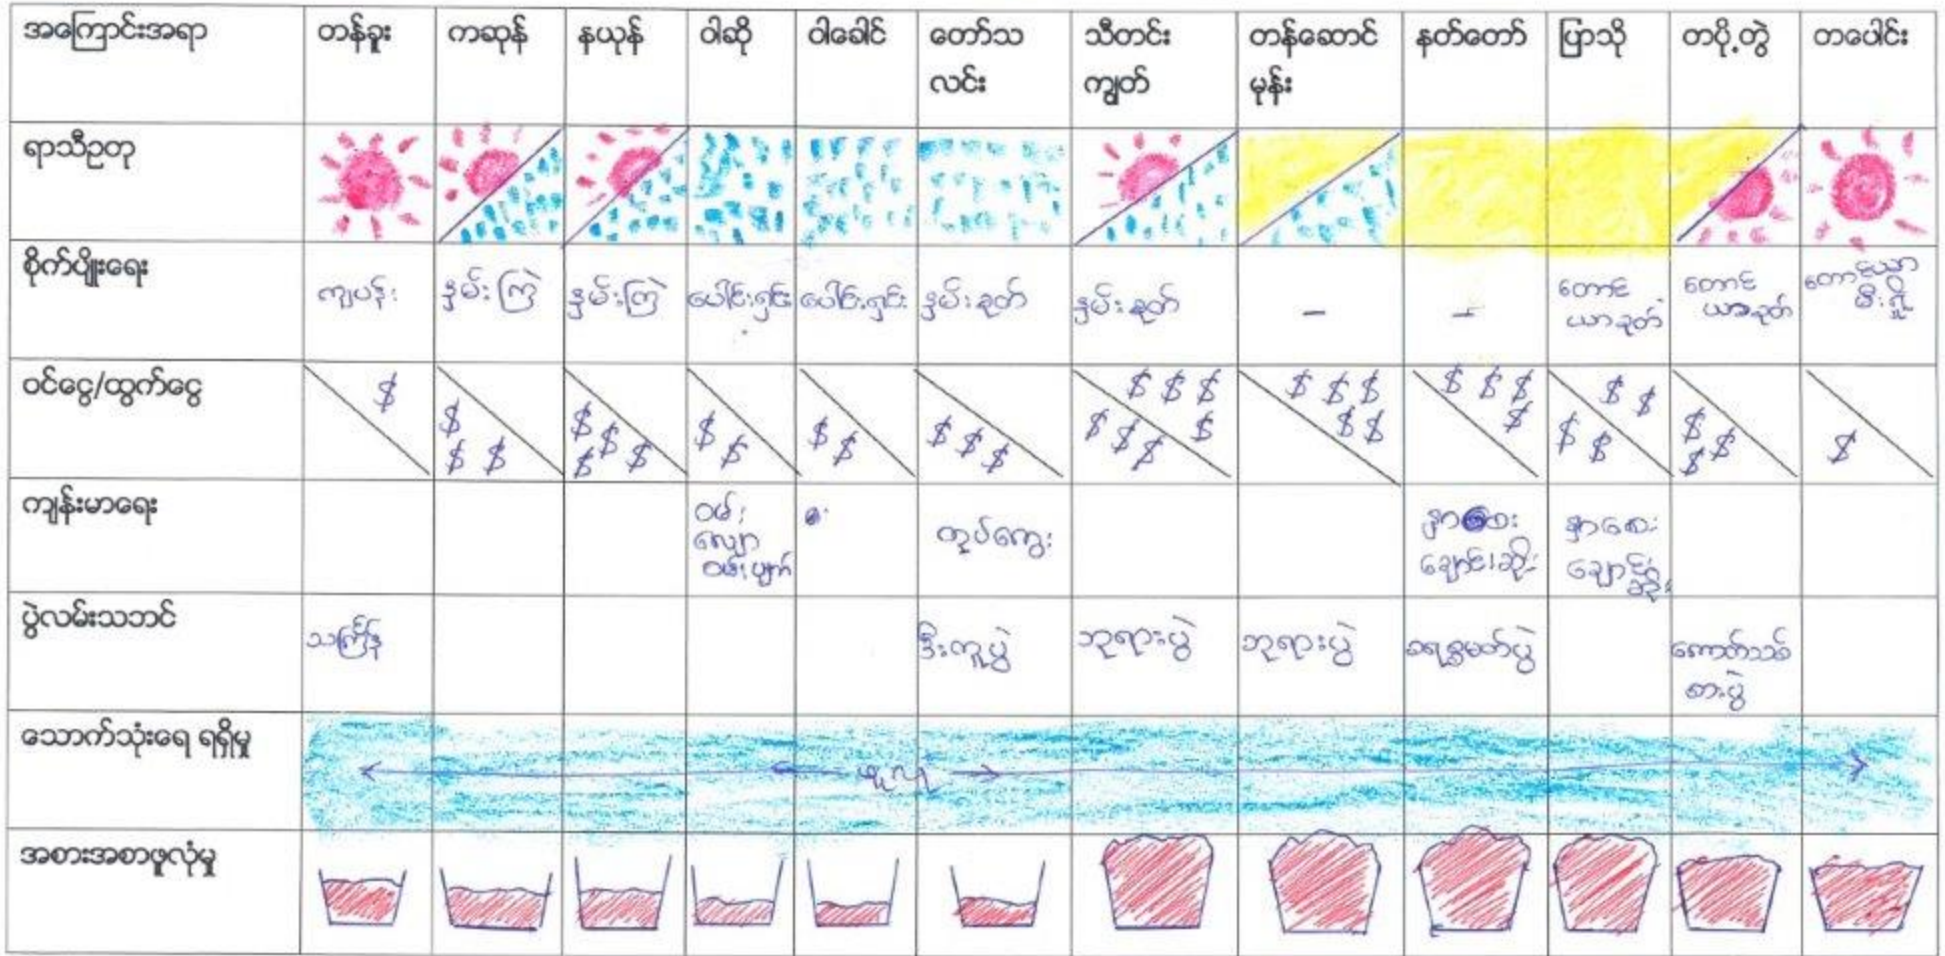 အကြောင်းအရာ တန်ခူး ကဆုန် နယုန် ဝါဆို ဝါခေါင် တော်သလင်း သီတင်းကျွတ် တန်ဆောင်မုန်း နတ်တော် ပြာသို တပို့တွဲ တပေါင်း
ရာသီဥတု
စိုက်ပျိုးရေး နှမ်းကြဲ နှမ်းကြဲ ပေါင်းရှင်း ပေါင်းရှင်း နှမ်းခုတ် နှမ်းခုတ် - - တောင်ယာခုတ် တောင်ယာခုတ် တောင်ယာမီးရှို့
ဝင်ငွေ/ထွက်ငွေ $ $ $ $ $ $ $ $ $ $ $ $ $ $ $ $ $ $ $ $ $ $ $ $ $ $ $ $ $ $ $ $ $ $ $ $ $ $
ကျန်းမာရေး ဝမ်းလျှော ဝမ်းပျက် တုပ်ကွေး နှာစေး ချောင်းဆိုး နှာစေး ချောင်းဆိုး
ပွဲလမ်းသဘင် သင်္ကြန် ဒီးကူပွဲ ဘုရားပွဲ ဘုရားပွဲ ခရစ္စမတ်ပွဲ ကောက်သစ်စားပွဲ
သောက်သုံးရေ ရရှိမှု
အစားအစာဖူလုံမှု